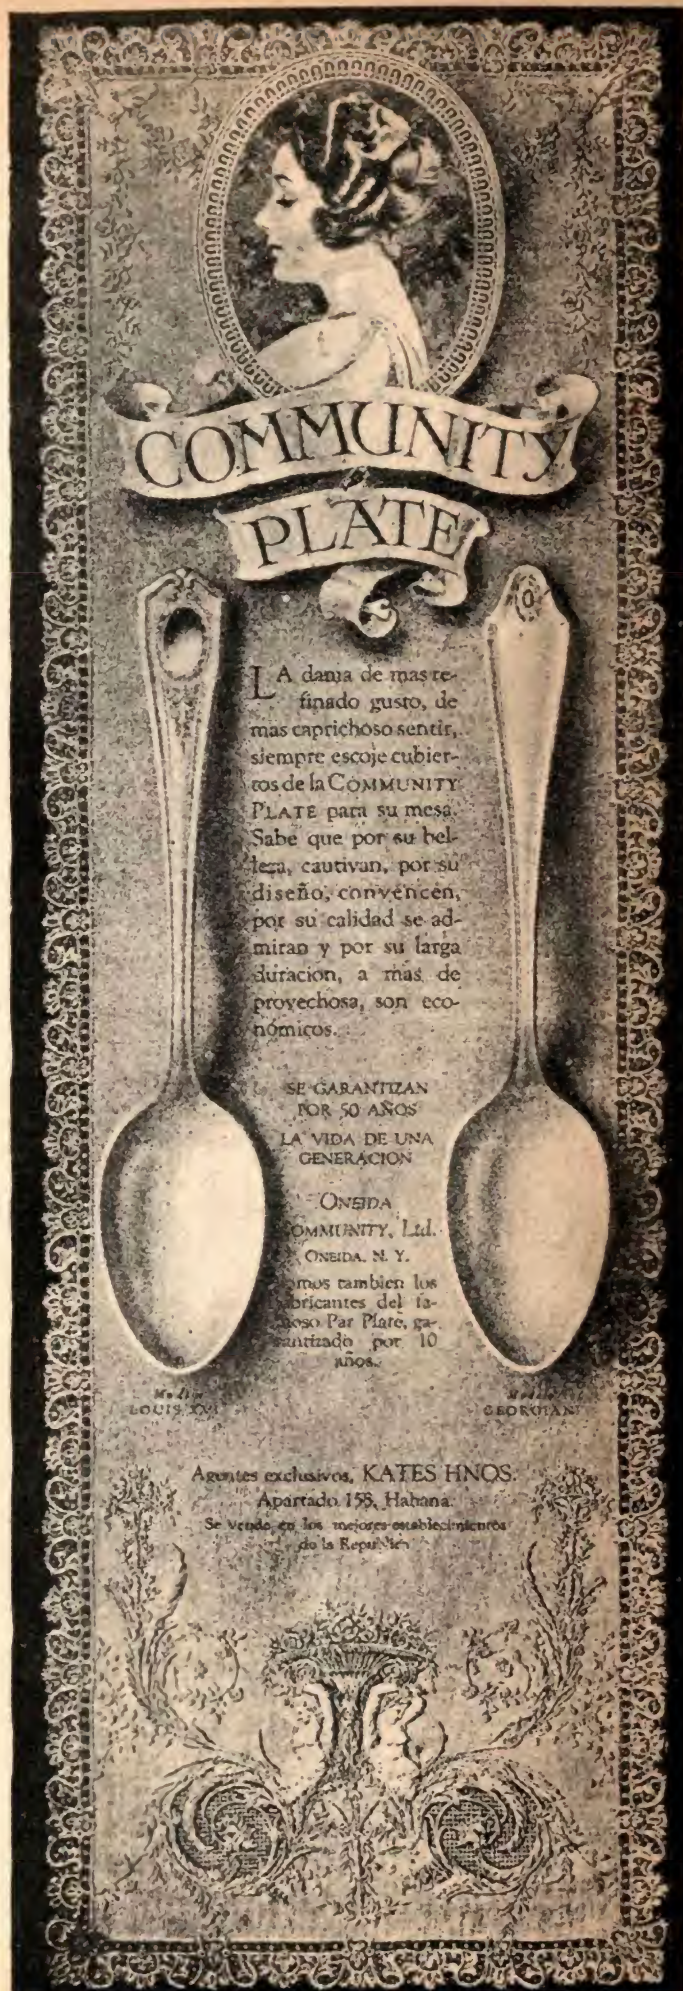 COMMUNITY
PLATE
LA dama de mas re-
finado gusto, de
mas caprichoso sentir,
siempre escoje cubier-
tos de la COMMUNITY
PLATE para su mesa.
Sabe que por su bel-
leza, cautivan, por su
diseño, convencen,
por su calidad se ad-
miran y por su larga
duracion, a mas de
provechosa, son eco-
nómicos.
SE GARANTIZAN
POR 50 AÑOS
LA VIDA DE UNA
GENERACION
ONEIDA
COMMUNITY, Ltd.
ONEIDA, N. Y.
Somos tambien los
fabricantes del fa-
moso Par Plate, ga-
rantizado por 10
años.
Modelo
LOUIS XVI
Modelo
GEORGIAN
Agentes exclusivos, KATES HNOS.
Apartado 158, Habana.
Se vende en los mejores establecimientos
de la Republica